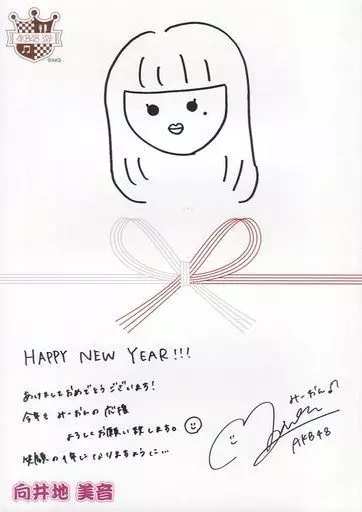 AKB48
©AKS
HAPPY NEW YEAR!!!
あけましておめでとうございます!
今年も みーおんの応援
よろしくお願い致します。
笑顔の1年になりますように…
みーおん♪
AKB48
向井地 美音